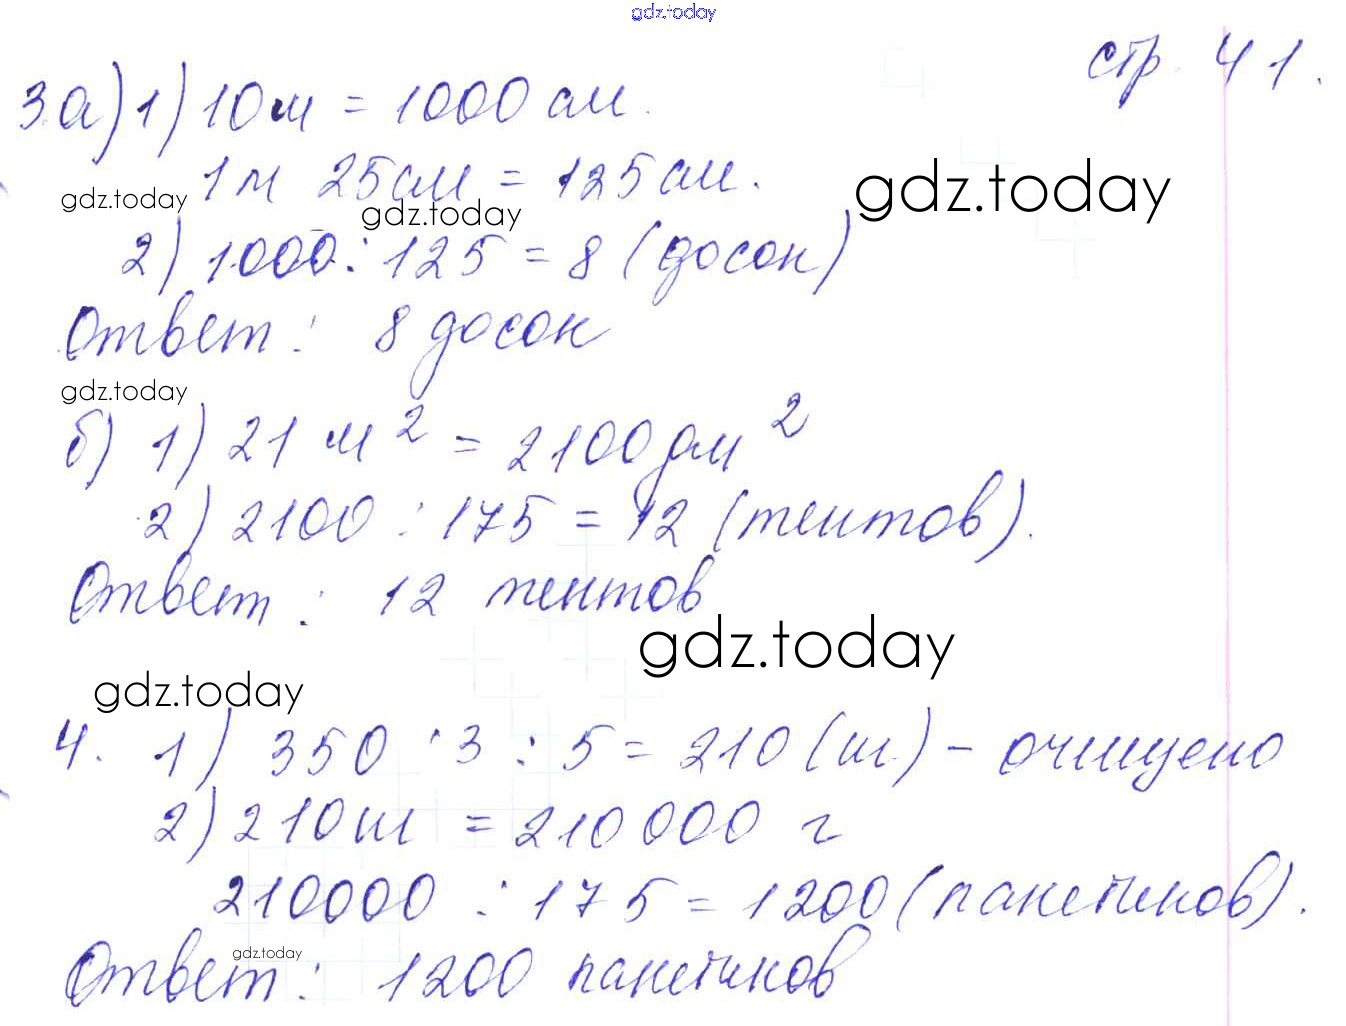 gdz.today
стр. 41.
3.а) 1) 10 м = 1000 см.
gdz.today
1 м 25 см = 125 см.
gdz.today
gdz.today
2) 1000 : 125 = 8 (досок)
Ответ : 8 досок
gdz.today
б) 1) 21 м² = 2100 дм²
2) 2100 : 175 = 12 (тентов).
Ответ : 12 тентов
gdz.today
gdz.today
4. 1) 350 · 3 : 5 = 210 (т) – очищено
2) 210 т = 210 000 г
210000 : 175 = 1200 (пакетиков).
gdz.today
Ответ : 1200 пакетиков